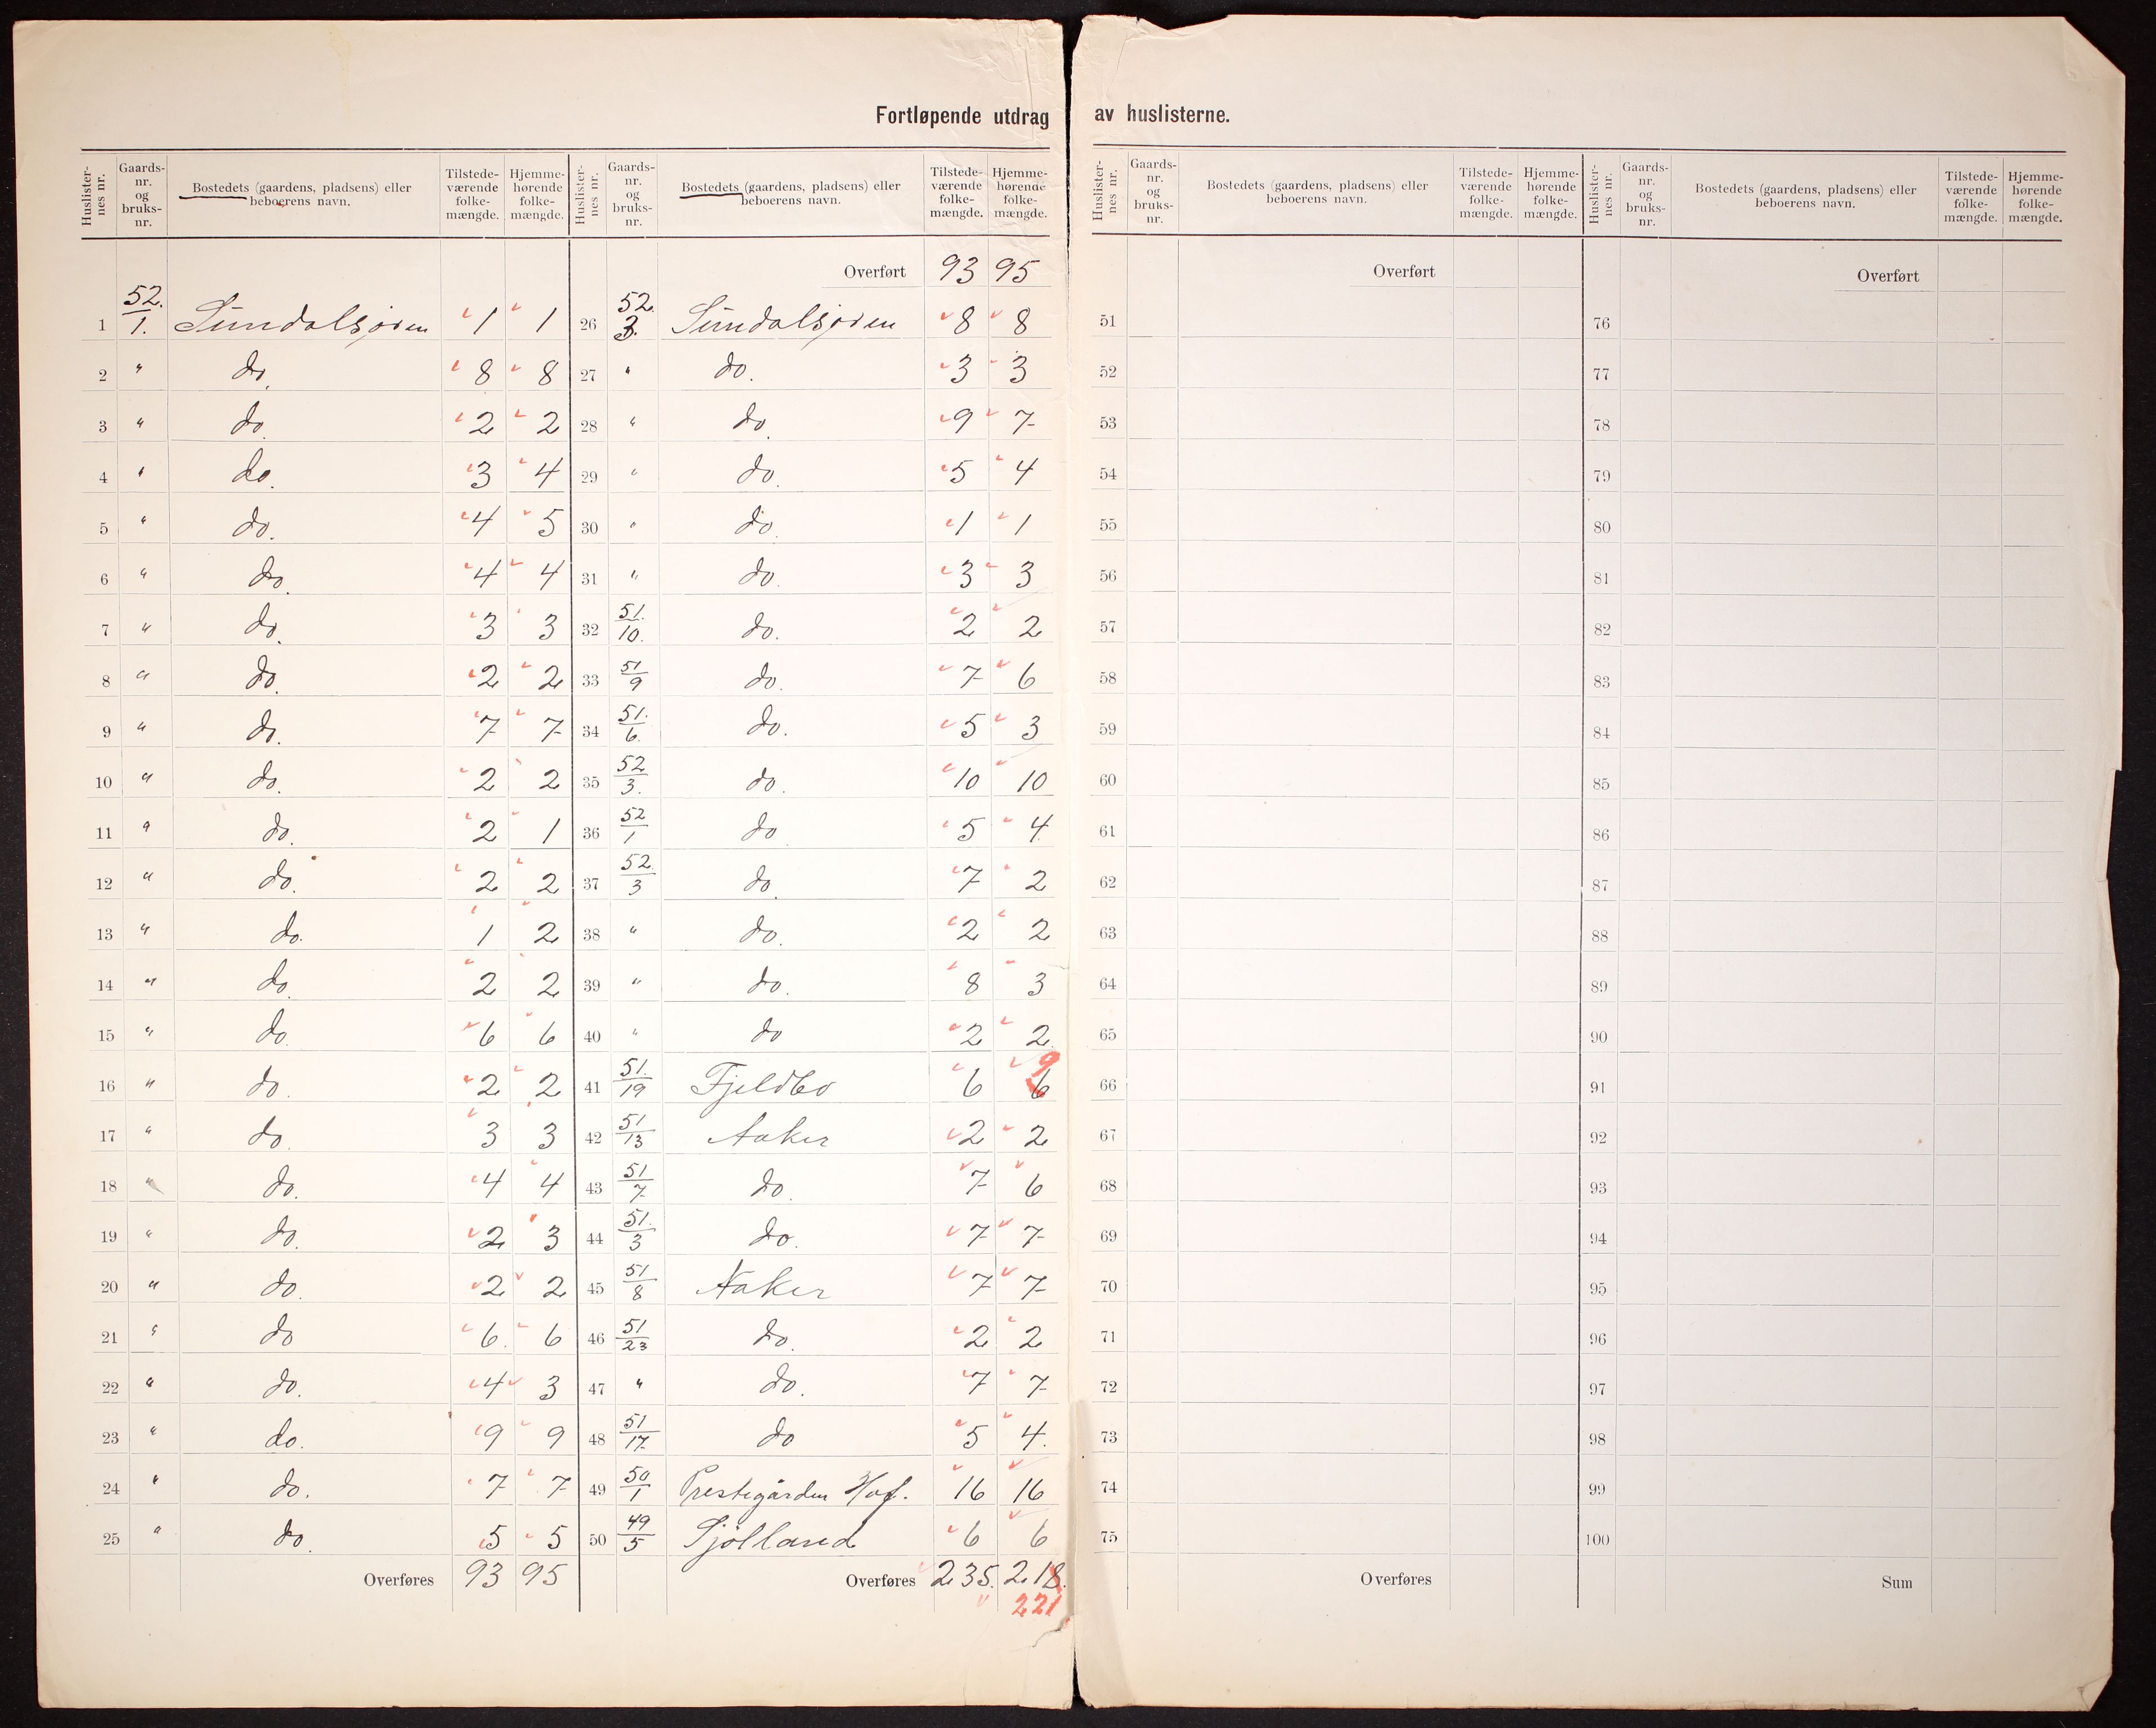 Fortløpende utdrag av huslisterne.
Huslister-nes nr. | Gaards-nr. og bruks-nr. | Bostedets (gaardens, pladsens) eller beboerens navn. | Tilstede-værende folke-mængde. | Hjemme-hørende folke-mængde.
1 52./1. Sundalsøren 1 1
2 " do. 8 8
3 " do. 2 2
4 " do. 3 4
5 " do. 4 5
6 " do. 4 4
7 " do. 3 3
8 " do. 2 2
9 " do. 7 7
10 " do. 2 2
11 " do. 2 1
12 " do. 2 2
13 " do. 1 2
14 " do. 2 2
15 " do. 6 6
16 " do. 2 2
17 " do. 3 3
18 " do. 4 4
19 " do. 2 3
20 " do. 2 2
21 " do 6. 6
22 " do. 4 3
23 " do. 9 9
24 " do. 7 7
25 " do. 5 5
Overføres 93 95
Huslister-nes nr. | Gaards-nr. og bruks-nr. | Bostedets (gaardens, pladsens) eller beboerens navn. | Tilstede-værende folke-mængde. | Hjemme-hørende folke-mængde.
Overført 93 95
26 52./3. Sundalsøren 8 8
27 " do. 3 3
28 " do. 9 7
29 " do. 5 4
30 " do. 1 1
31 " do. 3 3
32 51./10. do. 2 2
33 51/9 do. 7 6
34 51./6. do. 5 3
35 52/3. do. 10 10
36 52/1 do 5 4
37 52./3 do. 7 2
38 " do. 2 2
39 " do. 8 3
40 " do 2 2
41 51./19 Fjeldbo 6 6 9
42 51/13 Aaker 2 2
43 51/7 do. 7 6
44 51./3 do. 7 7
45 51/8 Aaker 7 7
46 51/23 do. 2 2
47 " do. 7 7
48 51/17 do 5 4.
49 50/1 Prestegården Hof. 16 16
50 49/5 Sjølland 6 6
Overføres 235. 218.
221
Huslister-nes nr. | Gaards-nr. og bruks-nr. | Bostedets (gaardens, pladsens) eller beboerens navn. | Tilstede-værende folke-mængde. | Hjemme-hørende folke-mængde.
Overført
51
52
53
54
55
56
57
58
59
60
61
62
63
64
65
66
67
68
69
70
71
72
73
74
75
Overføres
Huslister-nes nr. | Gaards-nr. og bruks-nr. | Bostedets (gaardens, pladsens) eller beboerens navn. | Tilstede-værende folke-mængde. | Hjemme-hørende folke-mængde.
Overført
76
77
78
79
80
81
82
83
84
85
86
87
88
89
90
91
92
93
94
95
96
97
98
99
100
Sum